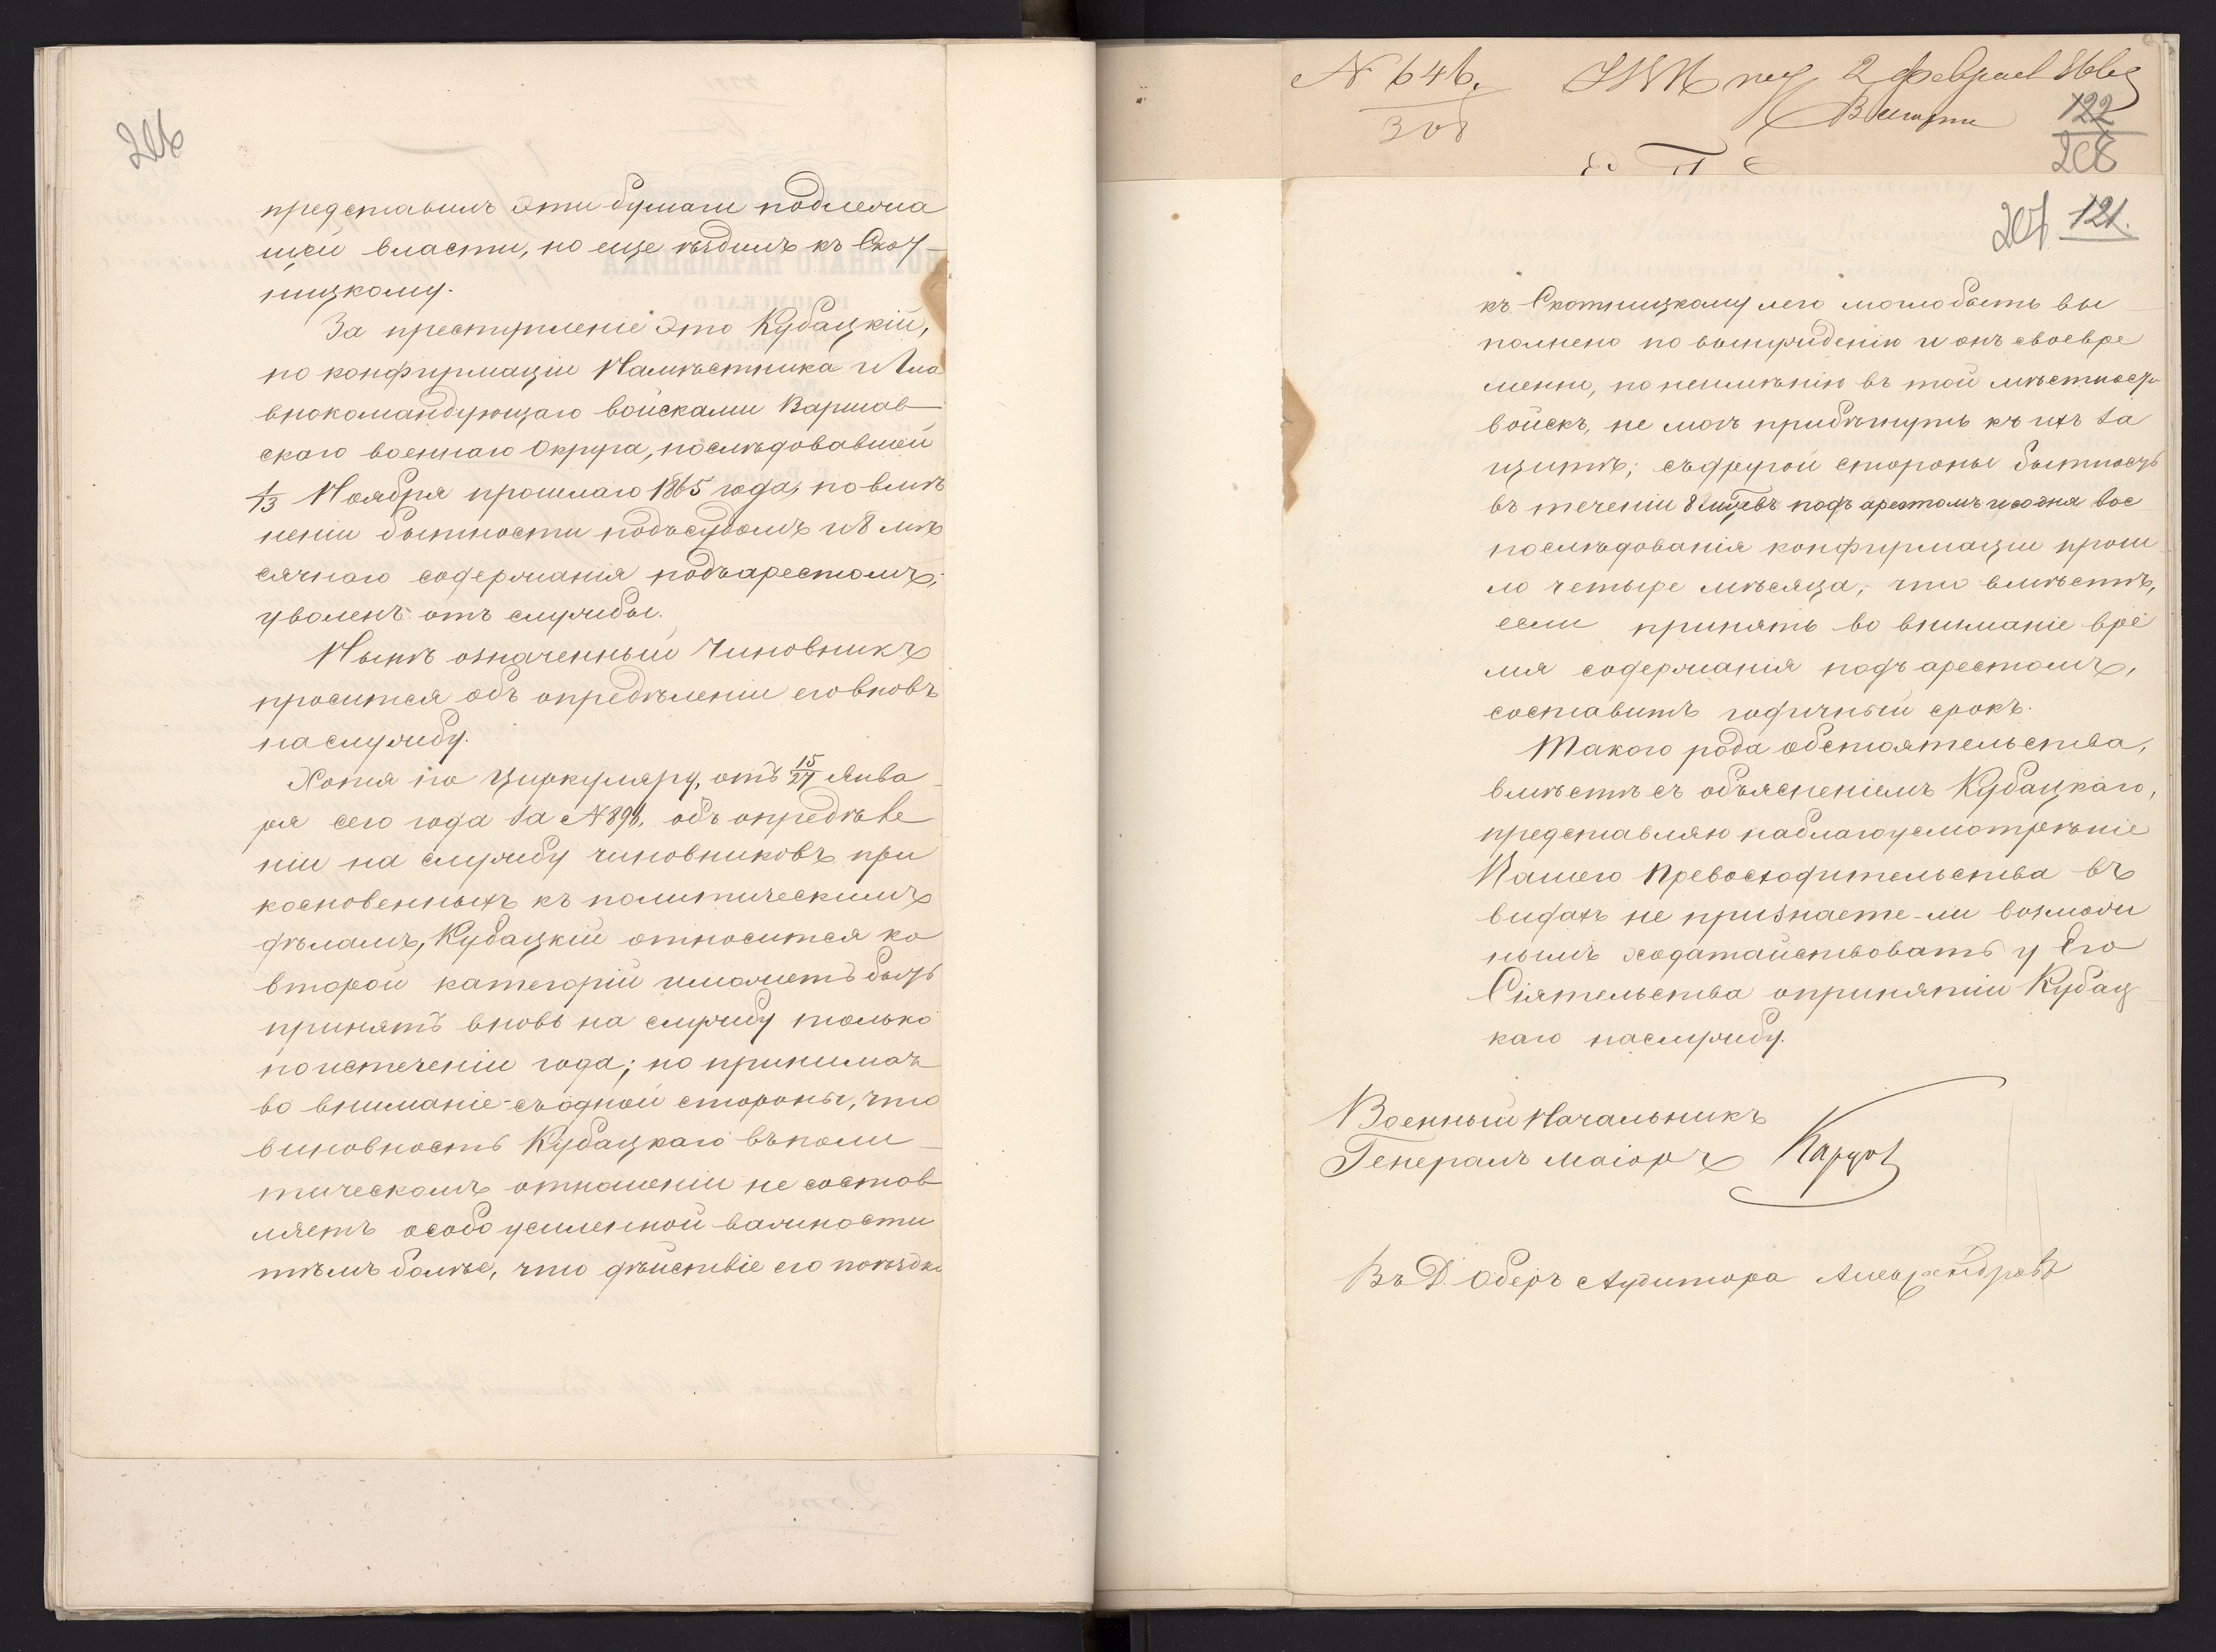 206
представилъ эти бумаги подлежа
щей власти, но еще ѣздилъ къ Скот-
ницкому.
За преступленіе это Кубацкій,
по конфирмаціи Намѣстника и Гла
внокомандующаго войсками Варшав-
скаго военнаго Округа, послѣдовавшей
1/13 Ноября прошлаго 1865 года, по вмѣ
неніи бытности подъ судомъ и 8 мѣ
сячнаго содержанія подъ арестомъ,
уволенъ отъ службы.
Нынѣ означенный Чиновникъ
просится объ опредѣленіи его вновь
на службу.
Хотя по Циркуляру, отъ 15/27 Янва-
ря сего года за № 898, объ опредѣле
ніи на службу чиновниковъ при
косновенныхъ къ политическимъ
дѣламъ, Кубацкій относится ко
второй категоріи и можетъ быть
принятъ вновь на службу только
по истеченіи года; но принимая
во вниманіе съ одной стороны, что
виновность Кубацкаго въ поли-
тическомъ отношеніи не состав
ляетъ особо усиленной важности
тѣмъ болѣе, что дѣйствіе его поѣздки
№ 646.
2 февраля 1866
122
208
207 121.
къ Скотницкому легко могло быть вы-
полнено по вынужденію и онъ своевре
менно, по неимѣнію въ той мѣстности
войскъ, не могъ прибѣгнуть къ ихъ за
щитѣ; съ другой стороны бытность
въ теченіи 8 мѣсяцевъ подъ арестомъ и со дня вос
послѣдованія конфирмаціи прош
ло четыре мѣсяца, что вмѣстѣ,
если принять во вниманіе вре
мя содержанія подъ арестомъ,
составитъ годичный срокъ.
Такого рода обстоятельства,
вмѣстѣ съ объясненіемъ Кубацкаго,
представляю на благоусмотрѣніе
Вашего Превосходительства въ
видахъ не признаете-ли возмож
нымъ ходатайствовать у Его
Сіятельства о принятіи Кубац-
каго на службу.
Военный Начальникъ
Генералъ маіоръ
Въ Д. Оберъ Аудитора Александровъ